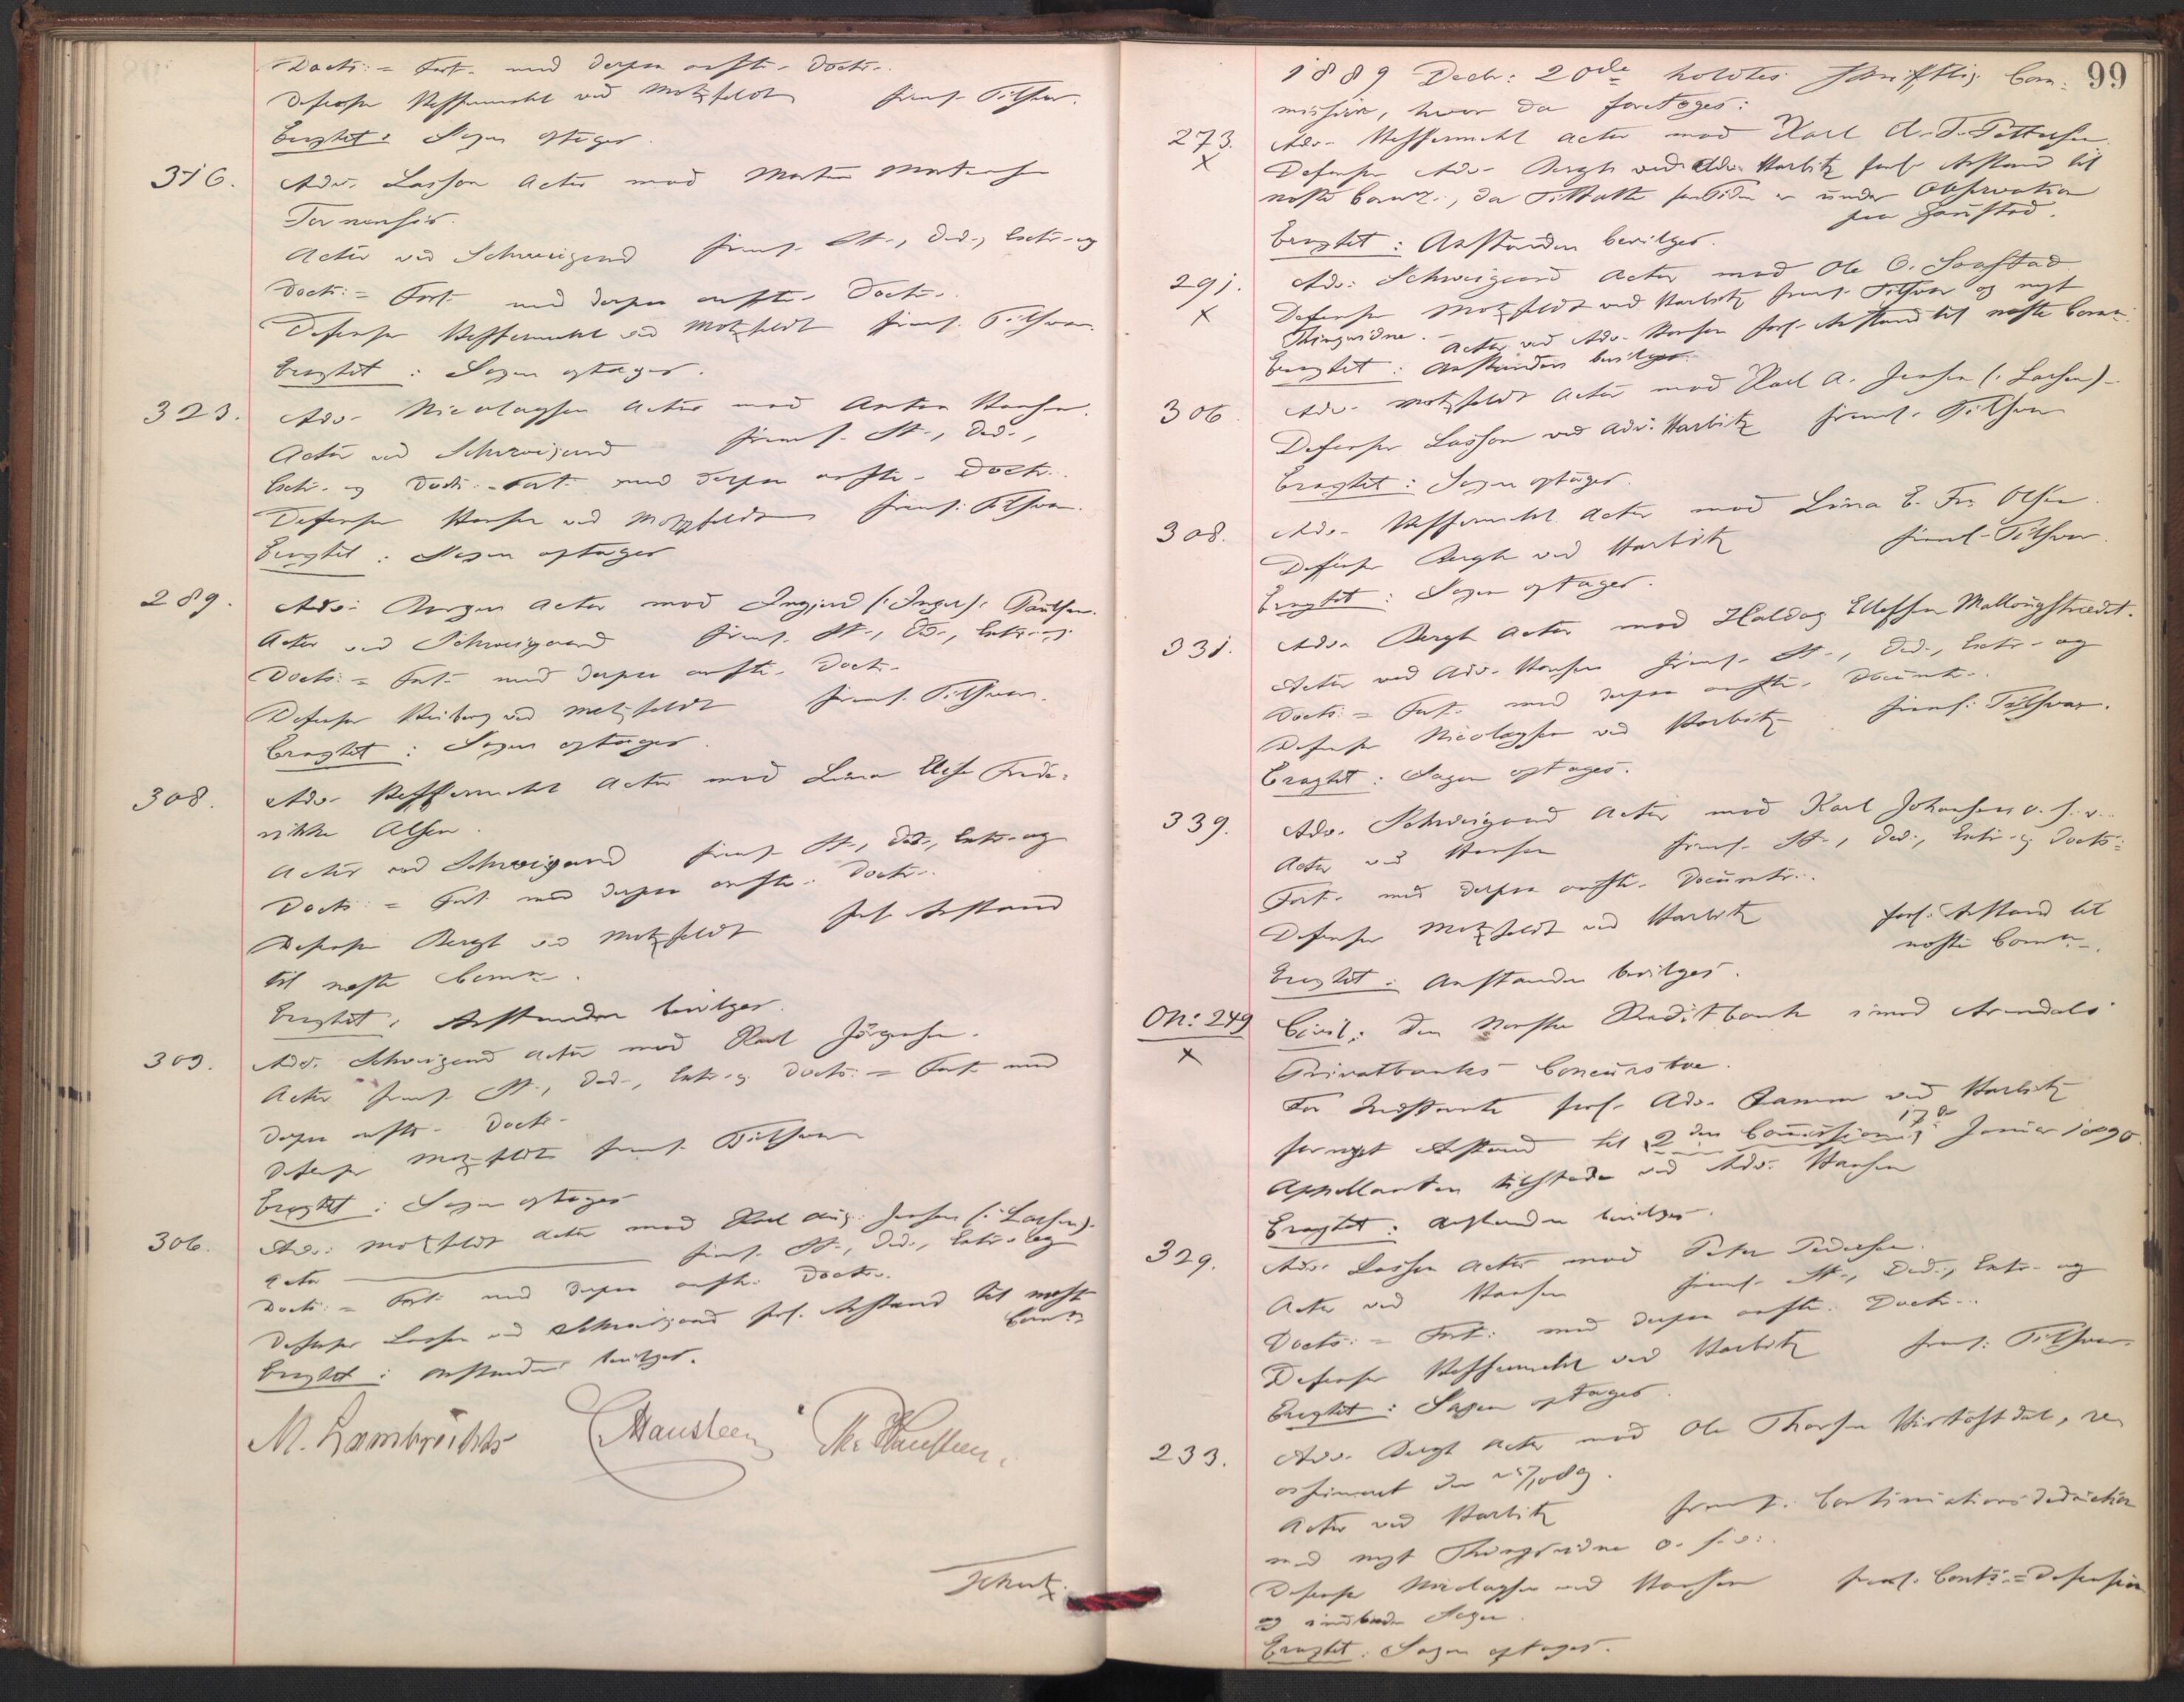 Docts: = Fort. med derpaa anfte. Docts.
Defensor Steffenrecht ved Motzfeldt freml. Tilsvar.
Eragtet: Sagen optages.
316. Adv. Lasson Actor mod Martin Mortensen
Actor ved Schweigaard freml. St., Ded., Extr. og
Docts: = Fort. med derpaa anfte. Docts.
Defensor ved Motzfeldt freml. Tilsvar.
Eragtet: Sagen optages.
323. Adv. Nicolaysen Actor mod Anton Hansen.
Actor ved Schweigaard freml. St., Ded.,
Extr. og Docts. = Fort. med derpaa anfte. Docts.
Defensor Hansen ved Motzfeldt freml. Tilsvar.
Eragtet: Sagen optages
289. Adv. Actor mod Ingjerd (: Inger): Paulsen.
Actor ved Schweigaard freml. St., Ded., Extr. og
Docts: = Fort. med derpaa anfte. Docts.
Defensor ved Motzfeldt freml. Tilsvar.
Eragtet: Sagen optages.
308. Adv. Actor mod Lina Elise Frede=
rikke Olsen.
Actor ved Schweigaard freml. St., Ded., Extr. og
Docts: = Fort. med derpaa anfte. Docts.
Defensor Bergh ved Motzfeldt forl. Anstand
til næste Comm.
Eragtet: Anstanden bevilges.
309. Adv. Schweigaard Actor mod Karl Jörgensen.
Actor freml. St., Ded., Extr. og Docts: = Fort. med
derpaa anfte. Docts.
Defensor Motzfeldt freml. Tilsvar
Eragtet: Sagen optages
306. Adv: Motzfeldt Actor mod Karl Aug. Jensen (: Larsen).
Actor freml. St., Ded., Extr. og
Docts: = Fort. med derpaa anfte. Docts.
Defensor Lasson ved Schweigaard forl. Anstand til næste
Comm.
Eragtet: Anstanden bevilges.
M. Lambrechts Hansteen
99
1889 Decbr: 20de holdtes skriftlig Com=
mission, hvor da foretoges:
273. Adv. Actor mod Karl A. T. Pettersen.
X Defensor Adv. Bergh ved Adv. Harbitz forl. Anstand til
næste Comm:, da Tiltalte for Tiden er under Observation
paa Gaustad.
Eragtet: Anstanden bevilges.
291. Adv: Schweigaard Actor mod Ole O.
X Defensor Motzfeldt ved Harbitz freml. Tilsvar og nyt
Thingsvidne. - Actor ved Adv. Hansen forl. Anstand til næste Comm.
Eragtet: Anstanden bevilges.
306. Adv. Motzfeldt Actor mod Karl A. Jensen (: Larsen).
Defensor Lasson ved Adv. Harbitz freml. Tilsvar
Eragtet: Sagen optages.
308. Adv. Actor mod Lina E. Fr. Olsen.
Defensor Bergh ved Harbitz freml. Tilsvar.
Eragtet: Sagen optages.
331. Adv. Bergh Actor mod Haldag Ellefsen
Actor ved Adv. Hansen freml. St., Ded., Extr. og
Docts: = Fort. med derpaa anfte. Documtr.
Defensor Nicolaysen ved Harbitz freml. Tilsvar.
Eragtet: Sagen optages.
339. Adv. Schweigaard Actor mod Karl Johansen o. s. v.
Actor ved Hansen freml. St., Ded., Extr. og Docts:
Fort. med derpaa anfte. Documtr.
Defensor Motzfeldt ved Harbitz forl. Anstand til
næste Comm.
Eragtet: Anstanden bevilges.
On: 249 Civil: Den Norske Kreditbank imod Arendals
X Privatbanks Concursbo.
For Indstævnte forl. Adv. Stamm ved Harbitz
fornyet Anstand til 2den Commission 17de Januar 1890.
Appellanten tilstede ved Adv. Hansen
Eragtet: Anstanden bevilges.
329. Adv. Lasson Actor mod Peter Pedersen.
Actor ved Hansen freml. St., Ded., Extr. og
Docts: = Fort: med derpaa anfte. Docts.
Defensor ved Harbitz freml: Tilsvar.
Eragtet: Sagen optages.
233. Adv. Bergh Actor mod Ole Thorsen
Actor ved Harbitz freml. Continuationsdeduction
med nyt Thingsvidne o. s. v.
Defensor Nicolaysen ved Hansen freml. Conts: = Defension
og indlader Sagen.
Eragtet: Sagen optages.